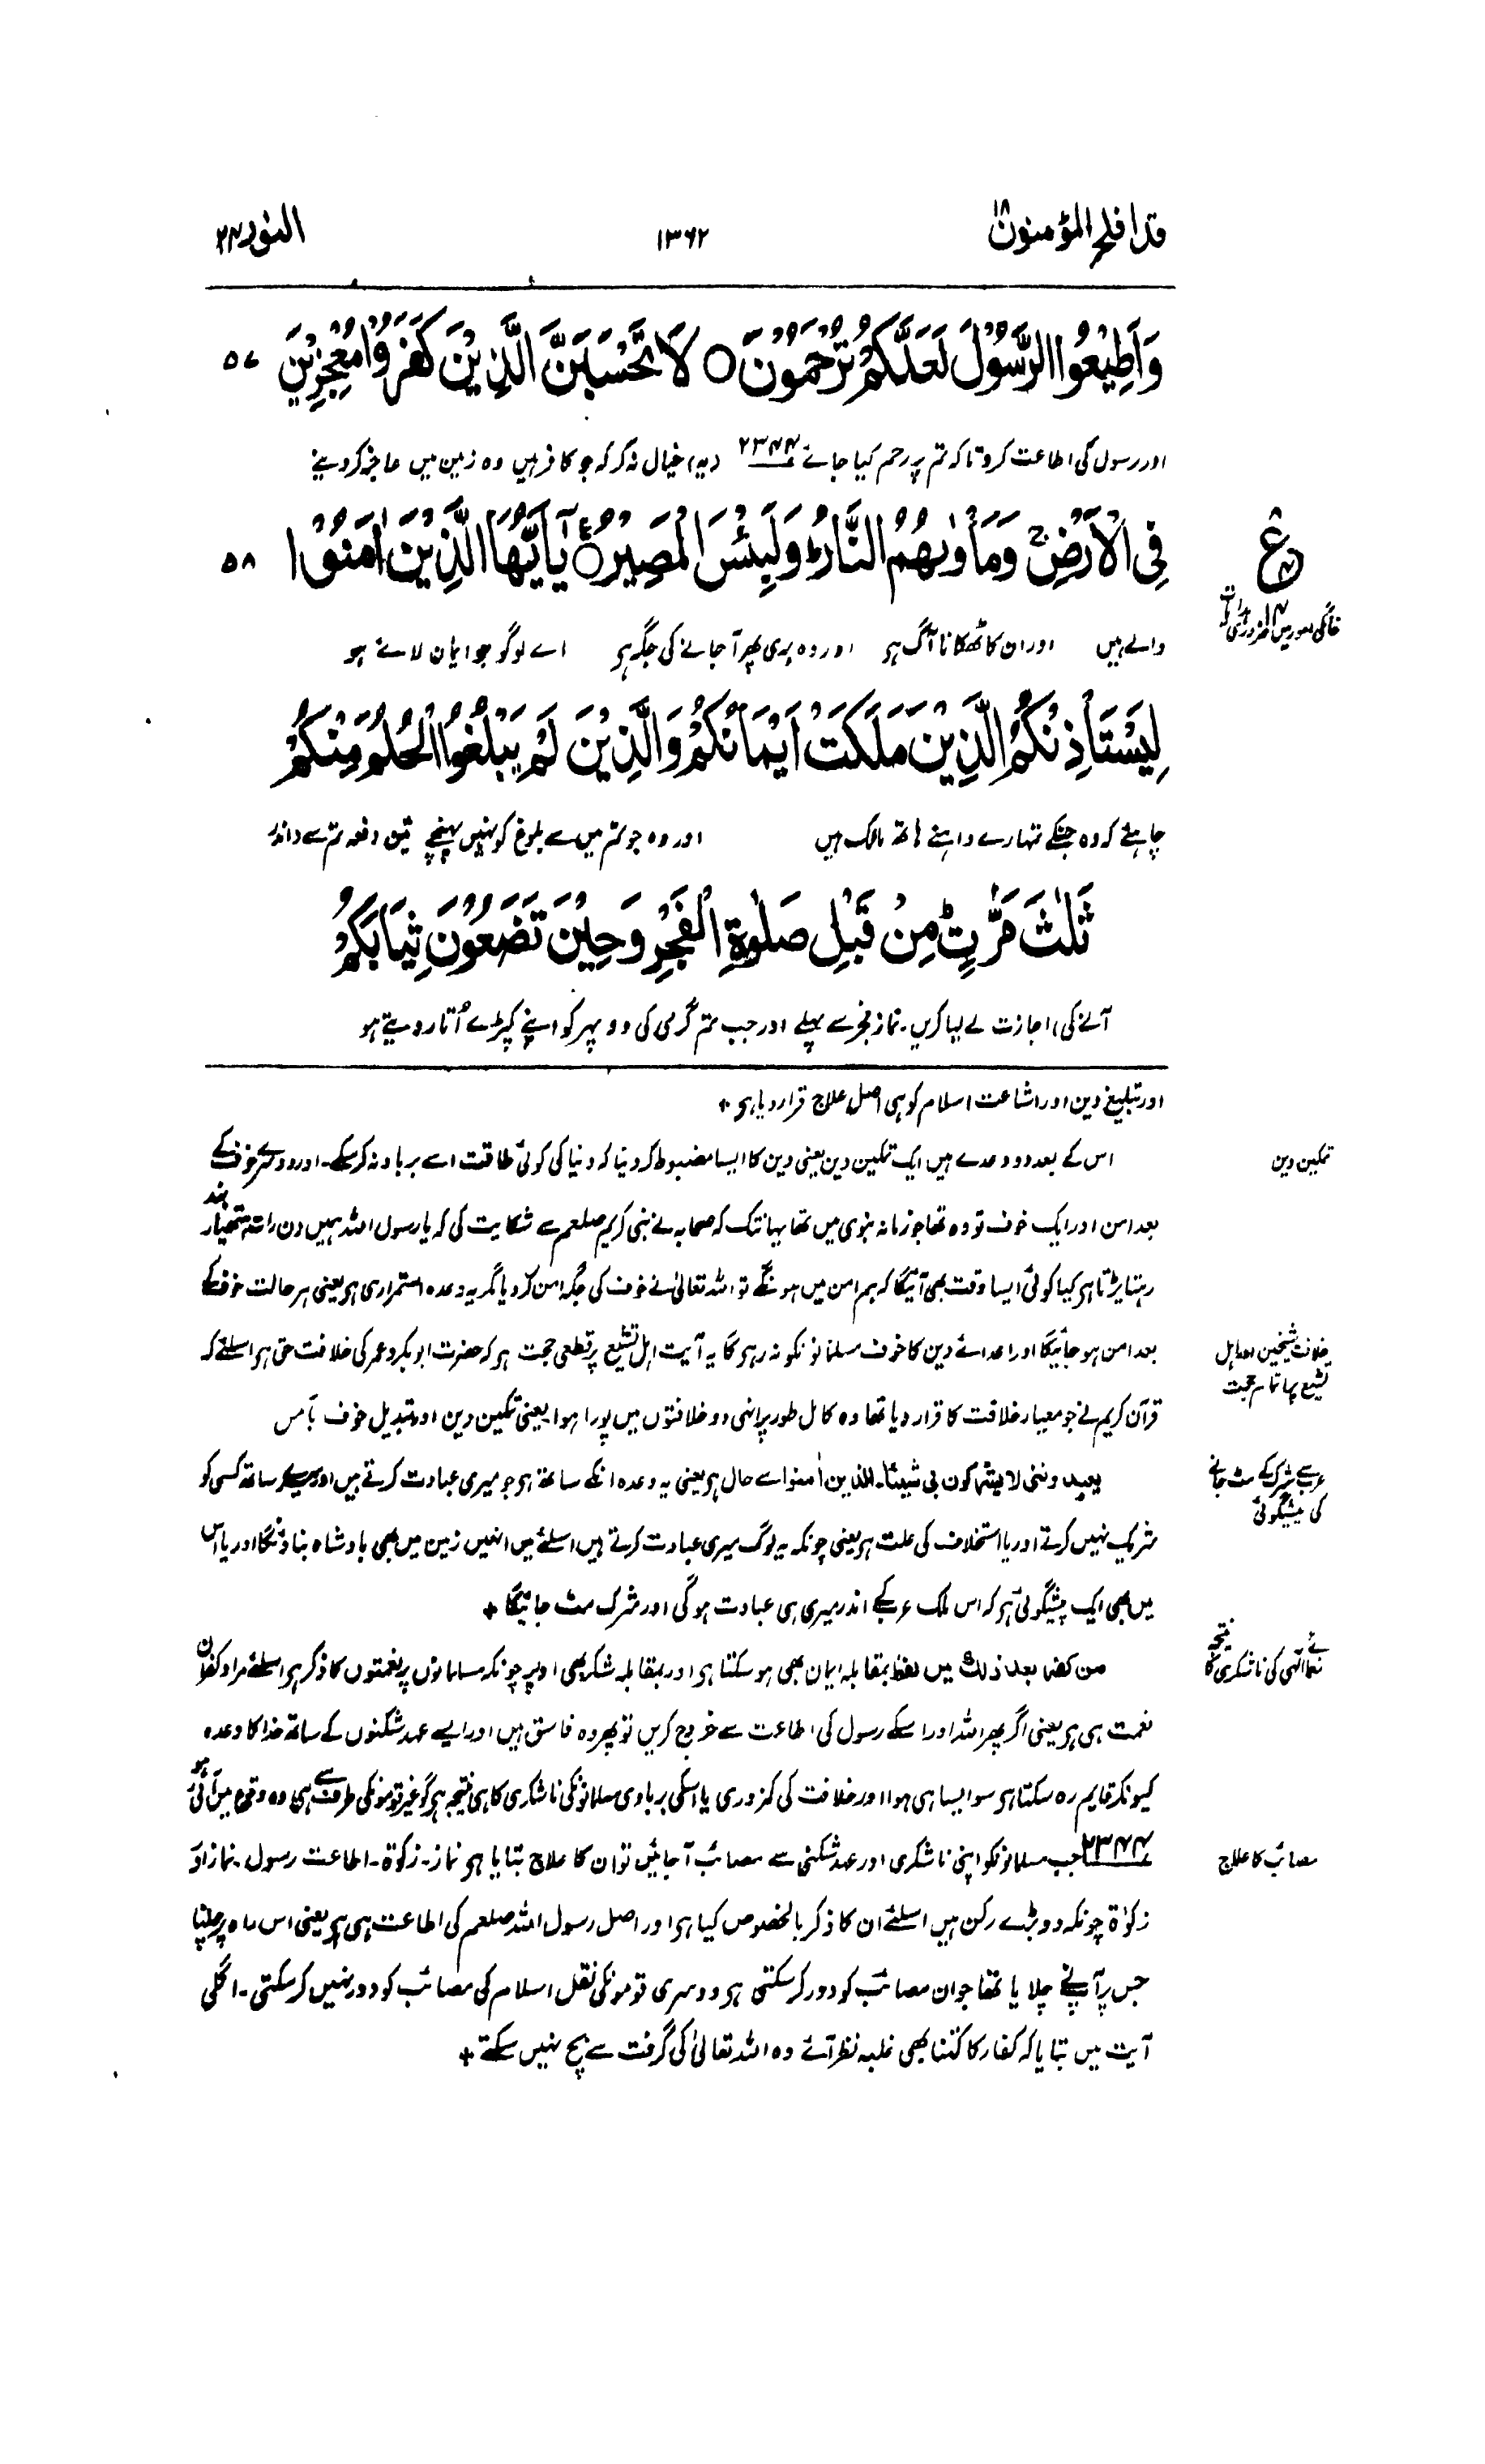 قد افلح المؤمنون ۱۸
۱۳۶۲
النور ۲۴
وَاَطِيْعُوا الرَّسُوْلَ لَعَلَّكُمْ تُرْحَمُوْنَ ○ لَا تَحْسَبَنَّ الَّذِيْنَ كَفَرُوْا مُعْجِزِيْنَ ۵۷
اور رسول کی اطاعت کرو تاکہ تم پر رحم کیا جائے ۲۳۴۴ (یہ) خیال نہ کر کہ جو کافر ہیں وہ زمین میں عاجز کر دینے
فِي الْاَرْضِ ۚ وَمَاْوٰىهُمُ النَّارُ ؕ وَلَبِئْسَ الْمَصِيْرُ ۠ يٰۤاَيُّهَا الَّذِيْنَ اٰمَنُوْا ۵۸
والے ہیں اور ان کا ٹھکانا آگ ہو اور وہ بری پھر آجانے کی جگہ ہو اے لوگو جو ایمان لائے ہو
لِيَسْتَاْذِنْكُمُ الَّذِيْنَ مَلَكَتْ اَيْمَانُكُمْ وَالَّذِيْنَ لَمْ يَبْلُغُوا الْحُلُمَ مِنْكُمْ
چاہئے کہ وہ جنکے تمہارے داہنے ہاتھ مالک ہیں اور وہ جو تم میں سے بلوغ کو نہیں پہنچے تین دفعہ تم سے (اندر
ثَلٰثَ مَرّٰتٍ ؕ مِنْ قَبْلِ صَلٰوةِ الْفَجْرِ وَحِيْنَ تَضَعُوْنَ ثِيَابَكُمْ
آنے کی) اجازت لے لیا کریں۔ نماز فجر سے پہلے اور جب تم گرمی کی دوپہر کو اپنے کپڑے اُتار دیتے ہو
اور تبلیغ دین اور اشاعت اسلام کو ہی اصل علاج قرار دیا ہو +
تمکین دین
اس کے بعد دو وعدے ہیں ایک تمکین دین یعنی دین کا ایسا مضبوط کر دینا کہ دنیا کی کوئی طاقت اسے برباد نہ کر سکے۔ اور دوسرے خوف کے
بعد امن اور ایک خوف تو وہ تھا جو زمانہ نبوی میں تھا یہانتک کہ صحابہ نے نبی کریم صلعم سے شکایت کی کہ یا رسول اللہ ہمیں دن رات ہتھیار بند
رہنا پڑتا ہو کیا کوئی ایسا وقت بھی آئیگا کہ ہم امن میں ہونگے تو اللہ تعالیٰ نے خوف کی جگہ امن کر دیا مگر یہ وعدہ استمراری ہو یعنی ہر حالت خوف کے
خلافت شیخین اور اہل
تشیع پر اتمام حجت
بعد امن ہو جائیگا اور اعدائے دین کا خوف مسلمانونکو نہ رہیگا یہ آیت اہل تشیع پر قطعی حجت ہو کہ حضرت ابوبکر و عمر کی خلافت حق ہو اسلئے کہ
قرآن کریم نے جو معیار خلافت کا قرار دیا تھا وہ کامل طور پر انہی دو خلافتوں میں پورا ہوا یعنی تمکین دین اور تبدیل خوف بامن
عرب سے شرک کے مٹ جانے
کی پیشگوئی
یعبدوننی لا یشرکون بی شیئًا۔ الذین اٰمنوا سے حال ہو یعنی یہ وعدہ انکے ساتھ ہو جو میری عبادت کرتے ہیں اور میرے ساتھ کسی کو
شریک نہیں کرتے اور یا استخلاف کی علت ہو یعنی چونکہ یہ لوگ میری عبادت کرتے ہیں اسلئے میں انہیں زمین میں بھی بادشاہ بناؤنگا اور یا اس
میں بھی ایک پیشگوئی ہو کہ اس ملک عرب کے اندر میری ہی عبادت ہوگی اور شرک مٹ جائیگا +
نعمائے الٰہی کی ناشکری کا نتیجہ
من کفر بعد ذلك میں لفظ بمقابلہ ایمان بھی ہو سکتا ہو اور بمقابلہ شکر بھی اوپر چونکہ مسلمانوں پر نعمتوں کا ذکر ہو اسلئے مراد کفران
نعمت ہی ہو یعنی اگر پھر اللہ اور اسکے رسول کی اطاعت سے خروج کریں تو پھر وہ فاسق ہیں اور ایسے عہد شکنوں کے ساتھ خدا کا وعدہ
کیونکر قایم رہ سکتا ہو سو ایسا ہی ہوا اور خلافت کی کمزوری یا اسکی بربادی مسلمانونکی ناشکری کا ہی نتیجہ ہو گو غیر قومونکی طرف سے ہی وہ وقوع میں آئی ہو
مصائب کا علاج
۲۳۴۴ جب مسلمانونکو اپنی ناشکری اور عہد شکنی سے مصائب آجائیں تو ان کا علاج بتایا ہو نماز۔ زکوٰۃ۔ اطاعت رسول۔ نماز اور
زکوٰۃ چونکہ دو بڑے رکن ہیں اسلئے ان کا ذکر بالخصوص کیا ہو اور اصل رسول اللہ صلعم کی اطاعت ہی ہو یعنی اس راہ پر چلنا
جس پر آپنے چلایا تھا جو ان مصائب کو دور کر سکتی ہو دوسری قومونکی نقل اسلام کی مصائب کو دور نہیں کر سکتی۔ اگلی
آیت میں بتایا کہ کفار کا کتنا بھی غلبہ نظر آئے وہ اللہ تعالیٰ کی گرفت سے بچ نہیں سکتے +